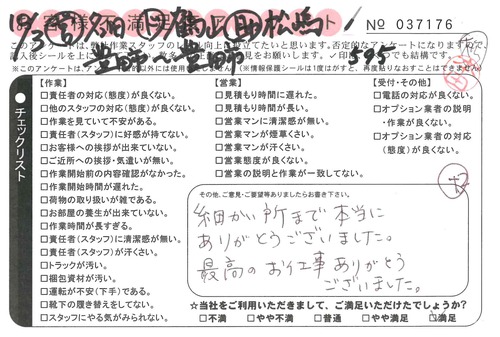 お客様不満足アンケート
№ 037176
このアンケートは、弊社作業スタッフのレベル向上に役立てたいと思います。否定的なアンケートになりますので、
595
チェックリスト
【作業】
□責任者の対応(態度)が良くない。
□他のスタッフの対応(態度)が良くない。
□作業を見ていて不安がある。
□責任者(スタッフ)に好感が持てない。
□お客様への挨拶が出来ていない。
□ご近所への挨拶・気遣いが無い。
□作業開始前の内容確認がなかった。
□作業開始時間が遅れた。
□荷物の取り扱いが雑である。
□お部屋の養生が出来ていない。
□作業時間が長すぎる。
□責任者(スタッフ)に清潔感が無い。
□責任者(スタッフ)が汗くさい。
□トラックが汚い。
□梱包資材が汚い。
□運転が不安(下手)である。
□靴下の履き替えをしてない。
□スタッフにやる気がみられない。
【営業】
□見積もり時間に遅れた。
□見積もり時間が長い。
□営業マンに清潔感が無い。
□営業マンが煙草くさい。
□営業マンが汗くさい。
□営業態度が良くない。
□営業の説明と作業が一致してない。
【受付・その他】
□電話の対応が良くない。
□オプション業者の説明
・作業が良くない。
□オプション業者の対応
(態度)が良くない。
その他、ご意見・ご要望等ありましたらお書き下さい。
細かい所まで本当に
ありがとうございました。
最高のお仕事ありがとう
ございました。
☆当社をご利用いただきまして、ご満足いただけたでしょうか?
□不満 □やや不満 □普通 □やや満足 □満足